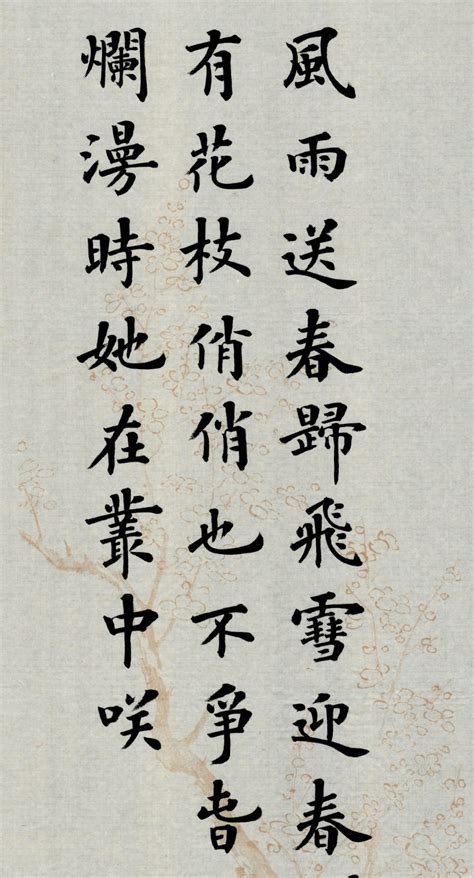 風雨送春歸飛雪迎春
有花枝俏俏也不爭旾
爛漫時她在叢中咲